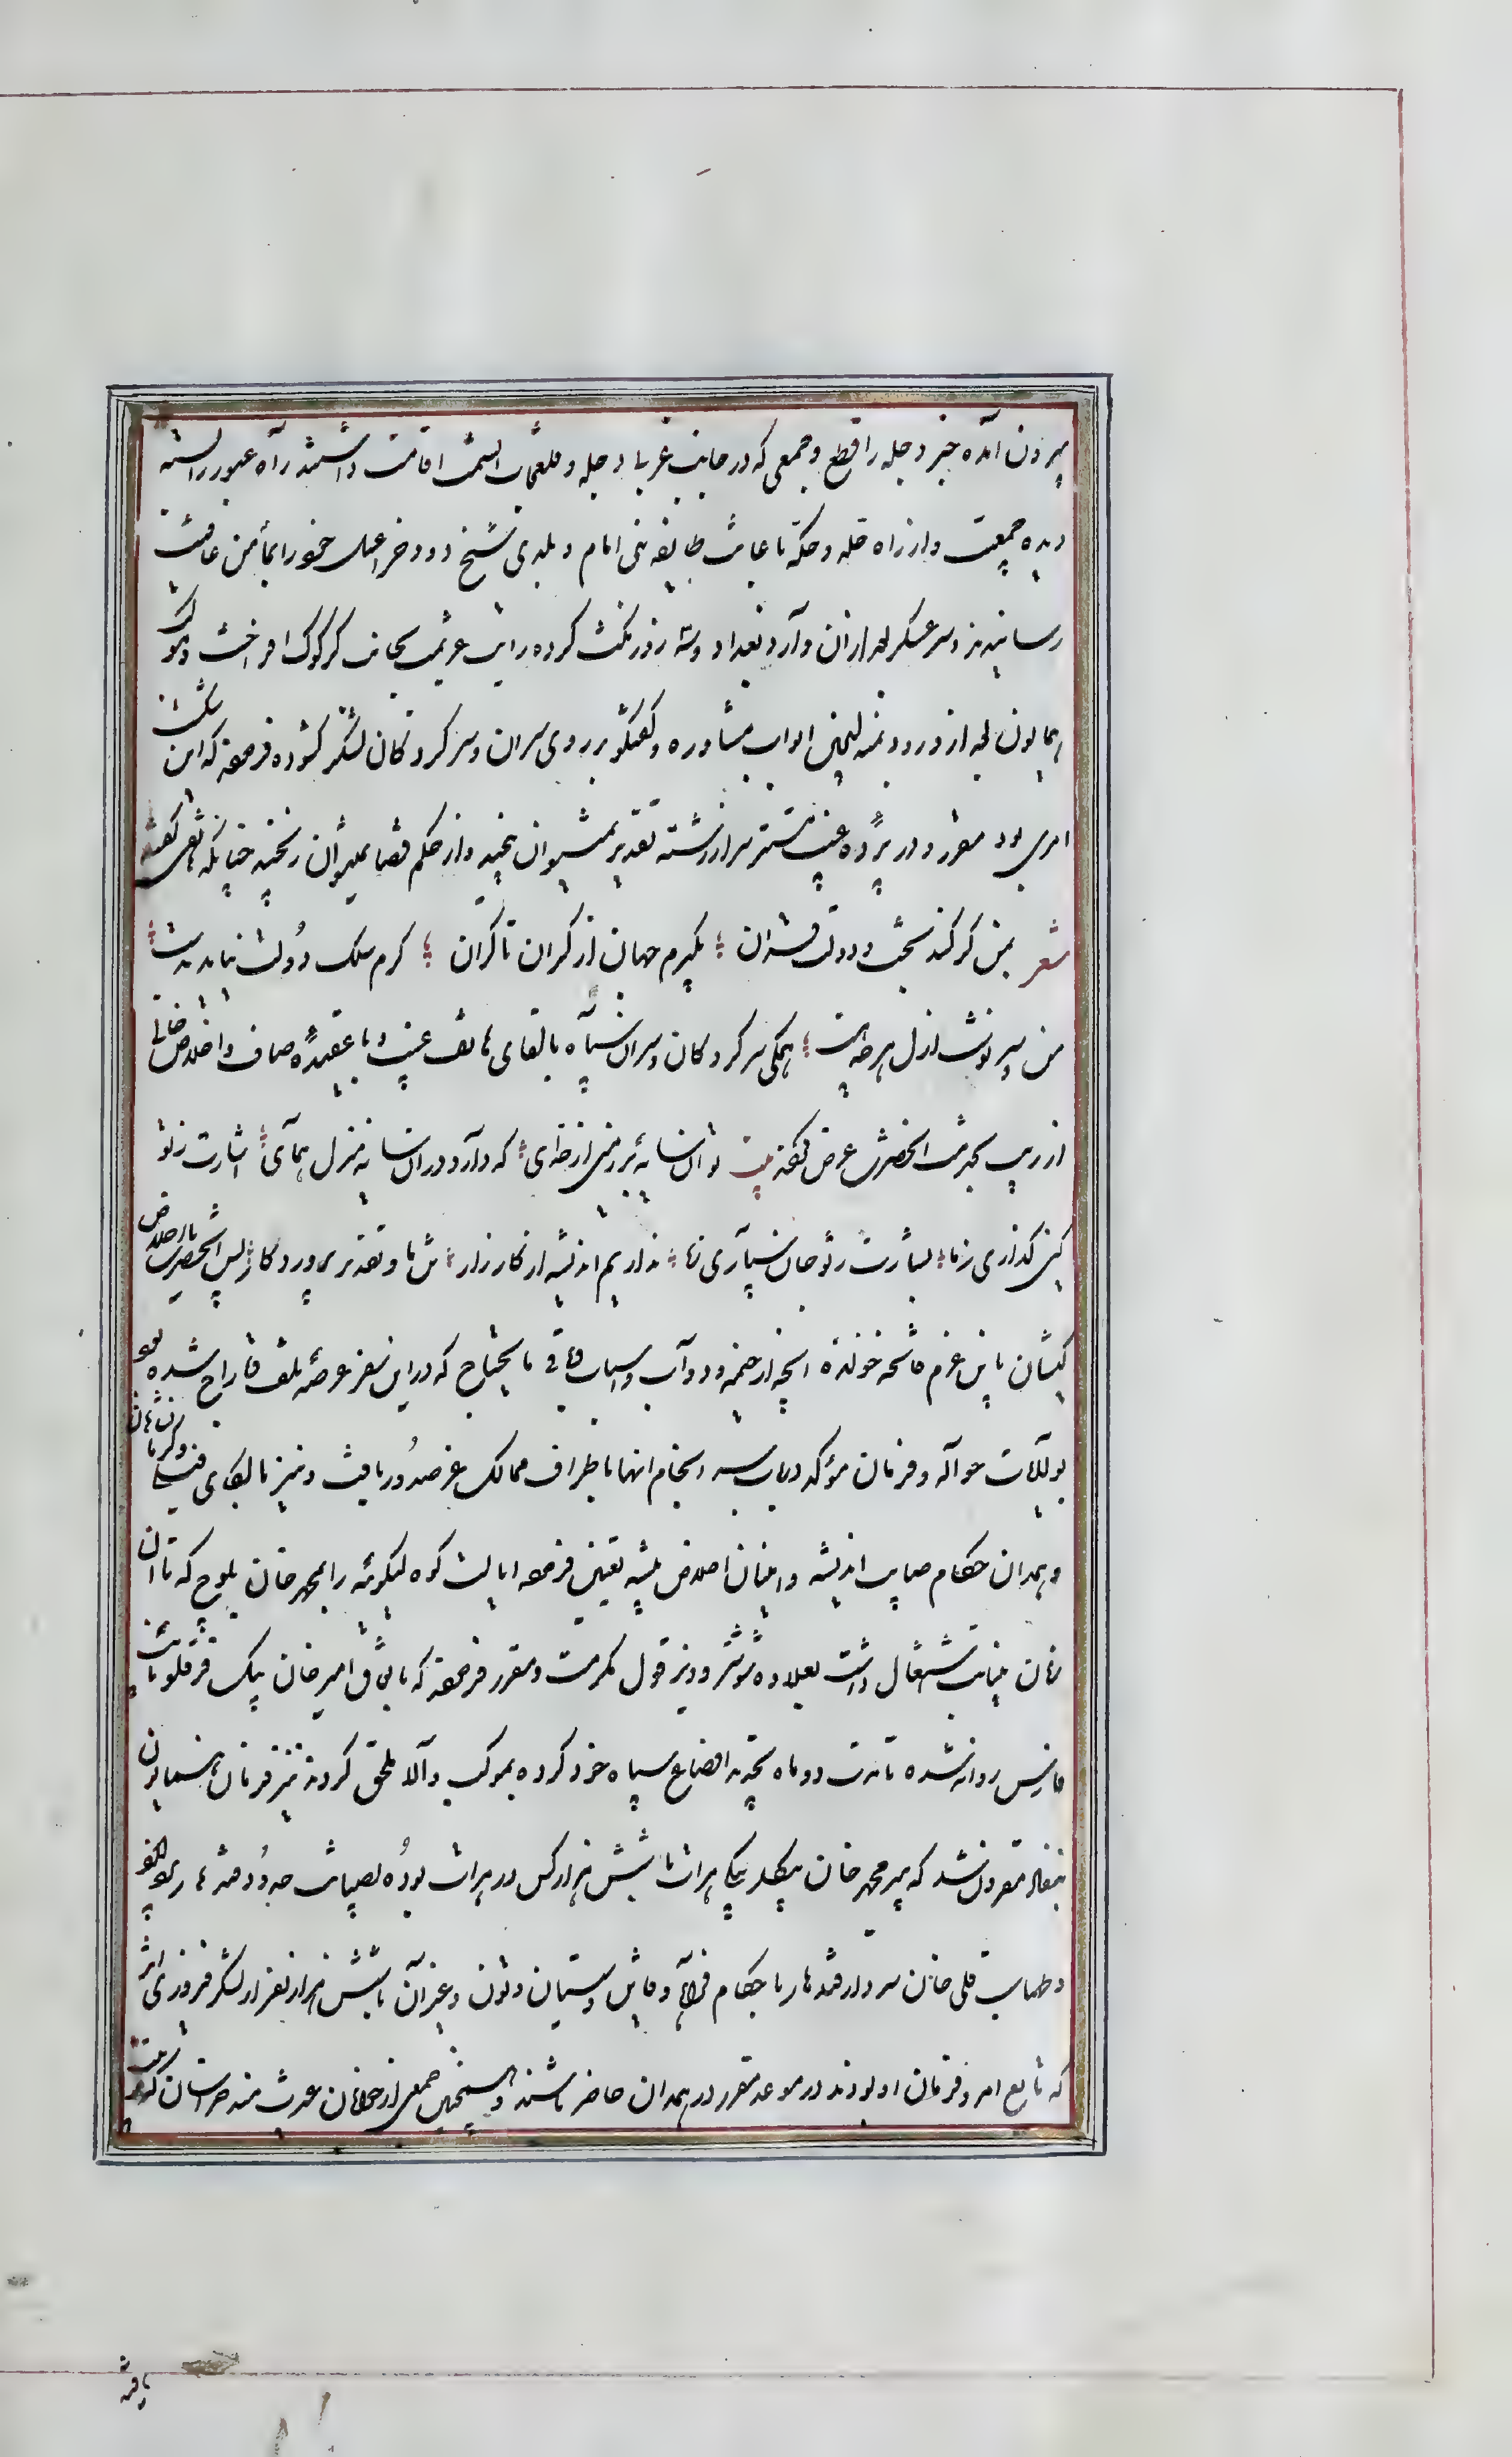 بیرون آمده جسر دجله را قطع و جمعی که در جانب غربی دجله و قلعجات آنسمت اقامت داشتند راه عبور را بسته
دیده جمعیت و از راه حله و حسکه با عانت طایفه بنی لام و بلدی شیخ دوخر اعل خود را بمأمن عافیت
رسانیدند و سرعسکر بعد از آن وارد بغداد و سه روز مکث کرده رایت عزیمت بجانب کرکوک افراخت و موکب
همایون بعد از ورود بمندلیجین ابواب مشاوره و گفتگو بر روی سران و سرکردگان لشکر گشوده فرمودند که این شکست
امری بود مقرر و در پرده غیب مستتر سر از رشته تقدیر نمیتوان پیچید و از حکم قضا نمیتوان گریخت چنانکه هاتفی گفته
شعر بمن گر کند بخت و دولت قران بگیرم جهان از کران تا کران گرم ملک و دولت نیاید بدست
من و سرنوشت ازل هر چه هست همگی سرکردگان و سران سپاه بالقای هاتف غیب و با عقیده صاف و اخلاص خالی
از ریب بخدمت آنحضرت عرض کردند بیت توان سایه پرور من از خدای که دارد در آن سایه منزل همای اشارت ز تو
کین گذاری ز ما بشارت ز تو جان سپاری ز ما نداریم اندیشه از کارزار من و ما و تقدیر پروردگار پس آنحضرت با اخلاص
کیشان باین عزم فاتحه خوانده آنچه از خیمه و دوآب و اسباب و باقی مایحتاج که در این سفر عرصه تلف و تاراج شده بود
بولایات حواله و فرمان مؤکد در باب سرانجام آنها باطراف ممالک عز صدور یافت و نیز بالکای فیلی و کرمانشاهان
و همدان حکام صایب اندیشه و اعیان اخلاص پیشه تعیین فرموده ایالت کوه کیلویه را بمحمد خان بلوچ که تا آن
زمان بنیابت اشتغال داشت بعلاوه شوشتر و دزفول مکرمت و مقرر فرمودند که باتفاق امیر خان بیک قرقلو نایب
فارس روانه شده تا مدت دو ماه تجدید اوضاع سپاه خود کرده بموکب والا ملحق گردند نیز فرمان همایون
بنفاذ مقرون شد که پیر محمد خان بیگلربیگی هرات با شش هزار کس در هرات بوده بصیانت حدود قندهار پردازد
و طهماسب قلی خان سردار قندهار با حکام فراه و قاین و سیستان و تون و غیران با شش هزار نفر از لشکر فیروزی اثر
که تابع امر و فرمان او بودند در موعد مقرر در همدان حاضر باشند و همچنین جمعی از خوانین معدلت مند خراسان که تربیت
یافته